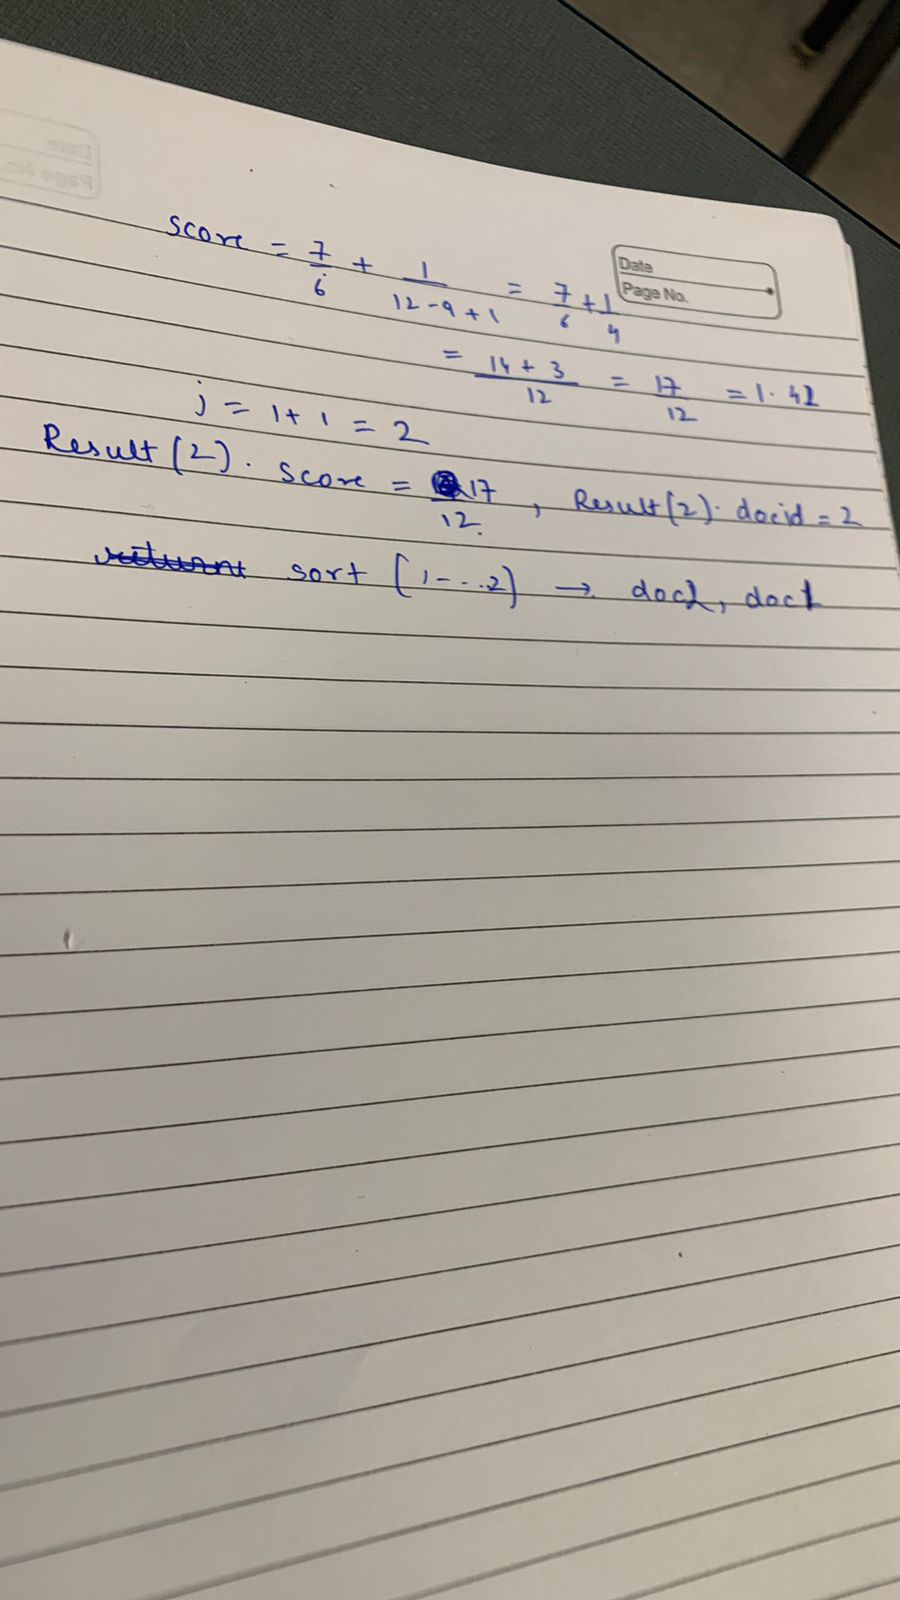 Date
Page No.
score = 7/6 + 1/(12-9+1) = 7/6 + 1/4
= (14+3)/12 = 17/12 = 1.42
j = 1+1 = 2
Result(2). score = 17/12, Result(2). docid = 2
sort (1-..2) → doc2, doc1